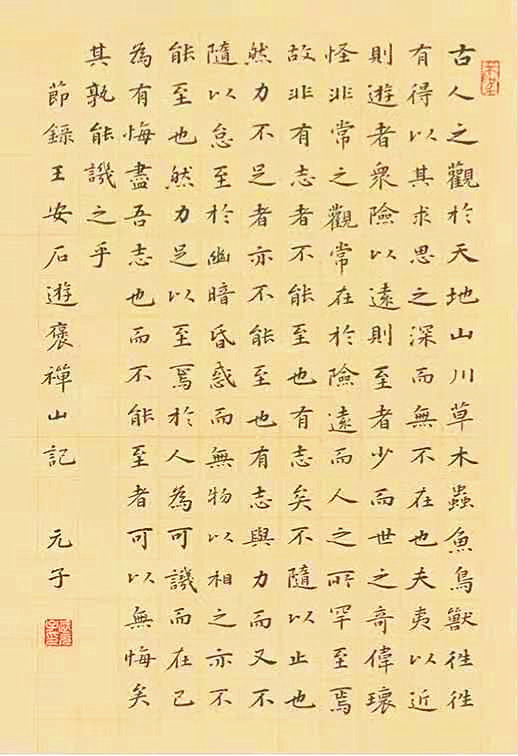 古人之觀於天地山川草木蟲魚鳥獸徃徃
有得以其求思之深而無不在也夫夷以近
則遊者衆險以遠則至者少而世之奇偉瓌
怪非常之觀常在於險遠而人之所罕至焉
故非有志者不能至也有志矣不隨以止也
然力不足者亦不能至也有志與力而又不
隨以怠至於幽暗昏惑而無物以相之亦不
能至也然力足以至焉於人為可譏而在己
為有悔盡吾志也而不能至者可以無悔矣
其孰能譏之乎
節錄王安石遊褒禪山記 元子